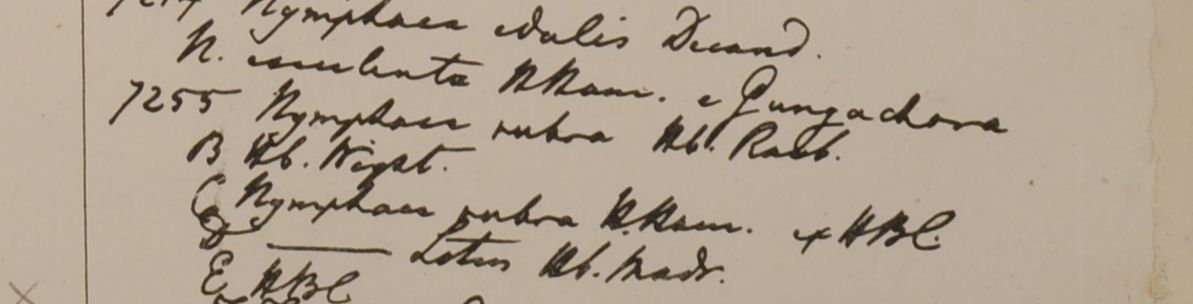 7254 Nymphaea edulis Decand.
N. esculenta H.Ham. e Gungachora
7255 Nymphaea rubra Hb. Roxb.
B Hb. Wight.
C Nymphaea rubra H.Ham. ex HBC.
D ——— Lotus Hb. Madr.
E HBC